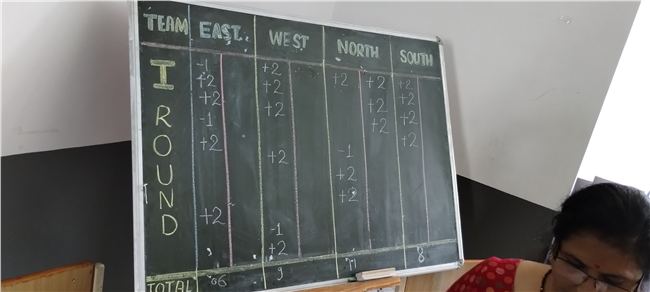 TEAM EAST WEST NORTH SOUTH
I ROUND
-1 +2 +2 +2 +2
+2 +2 +2 +2
+2 +2 +2 +2
-1
+2 +2
+2 -1
+2
+2
+2
-1
+2
TOTAL 6 9 8